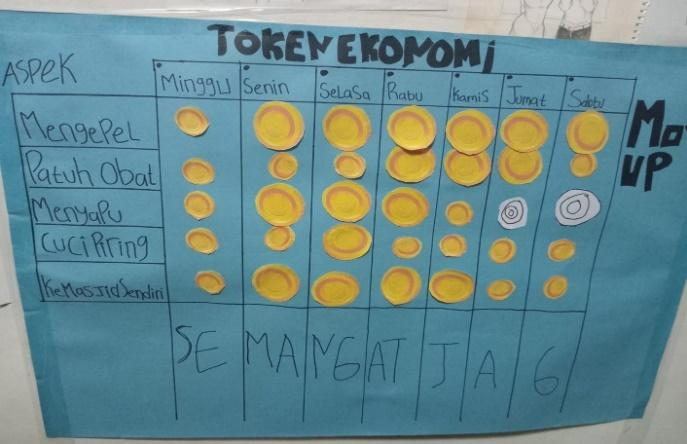 TOKEN EKONOMI
ASPEK
Minggu Senin Selasa Rabu Kamis Jumat Sabtu
Mengepel
Patuh Obat
Menyapu
Cuci Piring
Ke Masjid Sendiri
Mo
UP
SE MA NG AT J A G